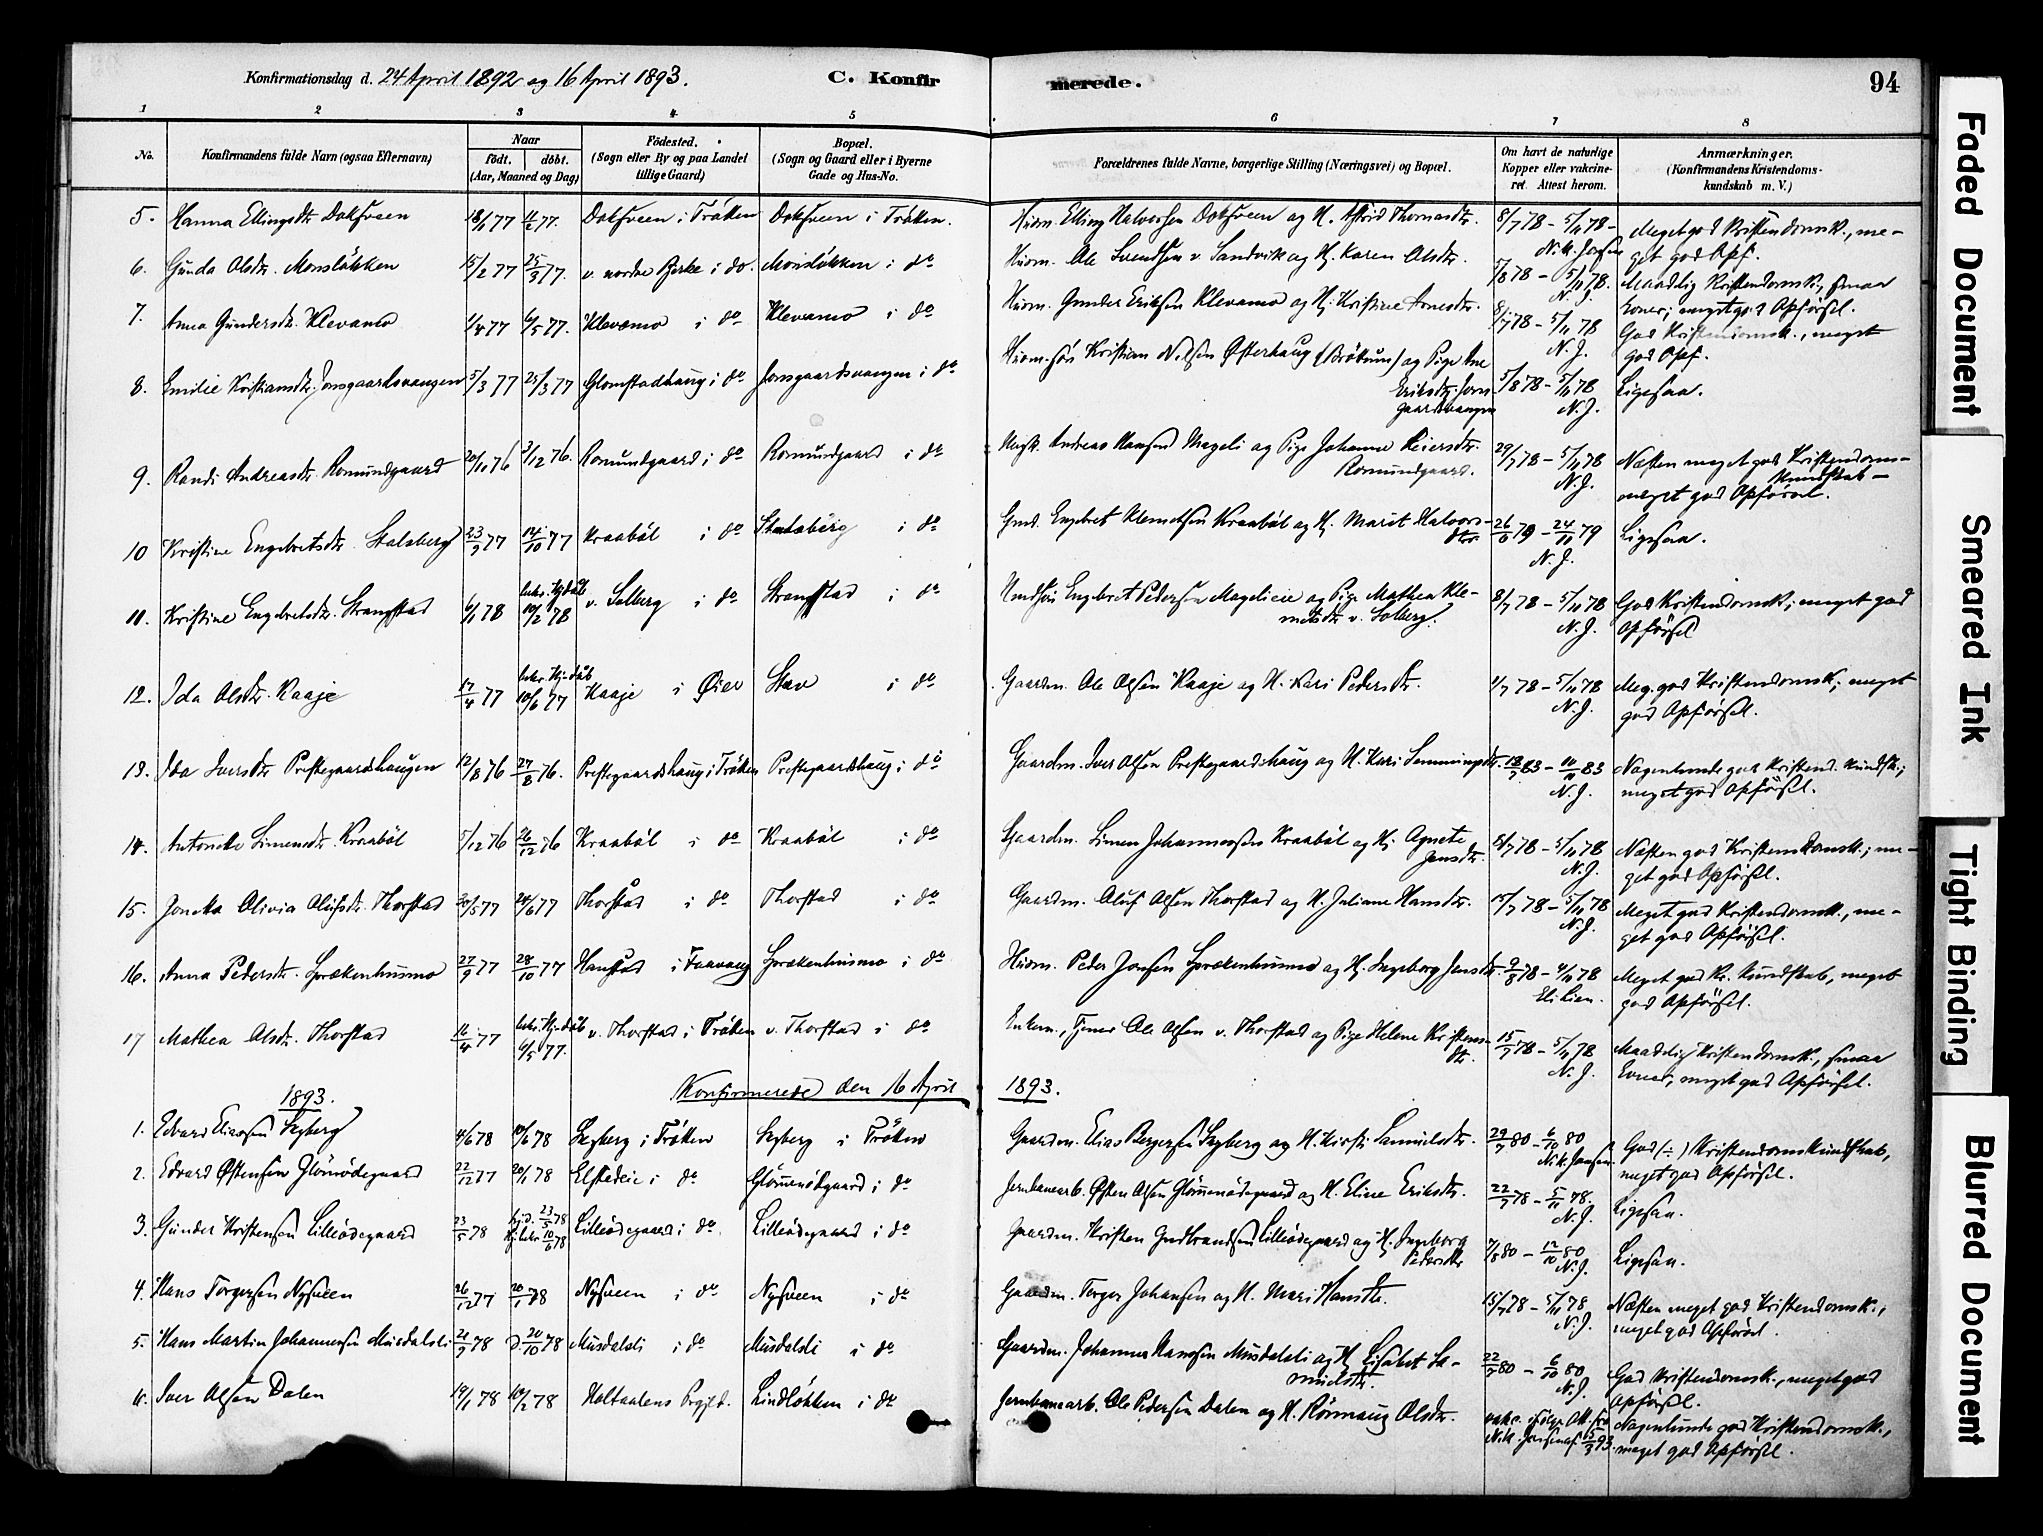 Konfirmationsdag d. 24 April 1892 og 16 April 1893. C. Konfir merede. 94
1 2 3 4 5 6 7 8
No. Konfirmandens fulde Navn (ogsaa Efternavn) Naar født. døbt. (Aar, Maaned og Dag) Fødested. (Sogn eller By og paa Landet tillige Gaard) Bopæl. (Sogn og Gaard eller i Byerne Gade og Hus-No. Forældrenes fulde Navne, borgerlige Stilling (Næringsvei) og Bopæl. Om havt de naturlige Kopper eller vakcineret. Attest herom. Anmærkninger. (Konfirmandens Kristendomskundskab m. V.)
5. Hanna Ellingsdtr. Doksveen 18/1 77 77. Doksveen i Tråtten Doksveen i Tråtten. Husm. Elling Halvorsen Doksveen og H. Astrid Thomasdtr. 8/7 78 – 5/11 78 – Meget god Kristendomsk., me-
N. K. Jensen get god Opf.
6. Gunda Olsdtr. Monsløkken 15/2 77 25/3 77. v. nordre Bjerke i do. Monsløkken i do Husm. Ole Svendsen v. Sandvik og Hj. Karen Olsdtr. 5/8 78 – 5/11 78. Maadelig Kristendomsk., smaa
N. J. Evner; meget god Opførsel.
7. Anna Gundersdtr. Klevamo 1/4 77 6/5 77. Klevamo i do Klevamo i do Husm. Gunder Eriksen Klevamo og Hj. Kristine Arnesdtr. 8/7 78 – 5/11 78 God Kristendomsk., meget
N. J. god Opf.
8. Emilie Kristiansdtr. Jonsgaardsvangen 5/3 77 25/3 77 Glomstadhaug i do Jonsgaardsvangen i do Husm.søn Kristian Nilsen Østerhaug (Bröttum) og Pige Ane
Eriksdtr. Jonsgaardsvangen 5/8 78 – 5/11 78 Ligesaa.
N. J.
9. Randi Andreasdtr. Romundgaard 20/11 76 3/12 76. Romundgaard i do Romundgaard i do Ungk. Andreas Hansen Mageli og Pige Johanne Reiersdtr.
Romundgaard. 29/7 78 – 5/11 78 Næsten meget god Kristendoms-
kundskab –
N. J. meget god Opførsel.
10 Kristine Engebretsdtr. Stalsberg 23/9 77 14/10 77 Kraabøl i do Stalsberg i do Gmd. Engebret Klemetsen Kraabøl og Hj. Marit Halvors-
dtr. 26/6 79 – 24/11 79 Ligesaa.
N. J.
11. Kristine Engebretsdtr. Strangstad 6/1 78 bekr. Hjdåb 10/2 78 v. Solberg i do Strangstad i do Engebret Pedersen Magelieie og Pige Mathea Kle-
metsdtr v. Solberg. 8/7 78 – 5/11 78 God Kristendomsk.; meget god
N. J. Opførsel
12. Ida Olsdtr. Kaaje 17/4 77 bekr. Hj-dåb 10/6 77 Kaaje i Øier Stav i do Gaardm. Ole Olsen Kaaje og H. Kari Pedersdtr. 1/7 78 – 5/11 78 Meg. god Kristendomsk; meget
N. J. god Opførsel.
13. Ida Iversdtr Prestegaardshaugen 12/8 76 27/8 76. Prestegaardshaug i Tråtten Prestegaardshaug i do Gaardm. Iver Olsen Prestegaardshaug og H. Kari Semmingsdtr. 83 – 83 Nogenlunde god Kristend. kundsk.;
N. J. meget god Opførsel.
14. Antonette Simensdtr. Kraabøl 5/12 76 26/12 76 Kraabøl i do Kraabøl i do Gaardm. Simen Johannessen Kraabøl og Hj. Agnete
Jensdtr. 8/7 78 – 5/11 78 Næsten god Kristendomsk.; me-
N. J. get god Opførsel.
15. Jonetta Olivia Olufsdtr. Thorstad 20/5 77 24/6 77 Thorstad i do Thorstad i do Gaardm. Oluf Olsen Thorstad og H. Juliane Hansdtr. 15/7 78 – 5/11 78 Meget god Kristendomsk., me-
N. J. get god Opførsel.
16. Anna Pedersdtr. Sprækenhusmo 27/9 77 28/10 77 Hanstad i Faavang Sprækenhusmo i do Husm. Peder Jonsen Sprækenhusmo og Hj. Ingeborg Jensdtr. 9/8 78 – 4/11 78 Meget god Kr. kundskab, meget
Eli Lien. god Opførsel.
17 Mathea Olsdtr. Thorstad 16/4 77 bekr. Hj-dåb 6/5 77. v. Thorstad i Tråtten v. Thorstad i do Enkem., Tjener Ole Olsen v. Thorstad og Pige Helene Kristens-
dtr. 15/7 78 – 5/11 78 Maadelig Kristendomsk., smaa
N. J. Evner, meget god Opførsel.
1893. Konfirmerede den 16 April 1893.
1. Edvard Eliassen Segberg 4/6 78 10/6 78 Segberg i Tråtten Segberg i Tråtten Gaardm. Elias Bergersen Segberg og H. Kirsti Samuelsdtr. 29/7 80 – 6/10 80 God (÷) Kristendomskundskab,
N. K. Jensen. meget god Opførsel.
2. Edvard Østensen Glömödegaard 22/12 77 20/1 78 Elstadeie i do Glömmödegaard i do Jernbanearb. Østen Olsen Glömmödegaard og H. Eline Eriksdtr. 22/7 78 – 5/11 78. Ligesaa.
N. J.
3. Gunder Kristensen Lilleödegaard 23/5 78 hj.d. 23/5 78 Hj. bekr. 10/6 78 Lilleödegaard i do. Lilleödegaard i do Gaardm. Kristen Gudbrandsen Lilleödegaard og Hj. Ingeborg
Pedersdtr 7/8 80 – 12/10 80 Ligesaa.
N. J.
4. Hans Torgersen Nysveen 26/12 77 20/1 78 Nysveen i do Nysveen i do Gaardm. Torger Johansen og H. Mari Hansdtr. 15/7 78 – 5/11 78 Næsten meget god Kristendomsk.,
N. J. meget god Opførsel.
5. Hans Martin Johannessen Musdalsli 21/9 78 d. 20/10 78 Musdalsli i do Musdalsli i do Gaardm. Johannes Hanssen Musdalsli og Hj. Lisabet Sa-
muelsdtr. 22/7 80 – 6/10 80 God Kristendomsk., meget god
N. J. Opførsel.
6. Iver Olsen Dalen 19/1 78 10/2 78 Holtaalens Prgjld. Lindløkken i do Jernbanearb. Ole Pedersen Dalen og H. Rönnaug Olsdtr. vakc. ifølge Att. fra Nogenlunde god Kristendomsk.,
N. K. Jensen af 15/3 93. meget god Opførsel.
Faded Document
Smeared Ink
Tight Binding
Blurred Document